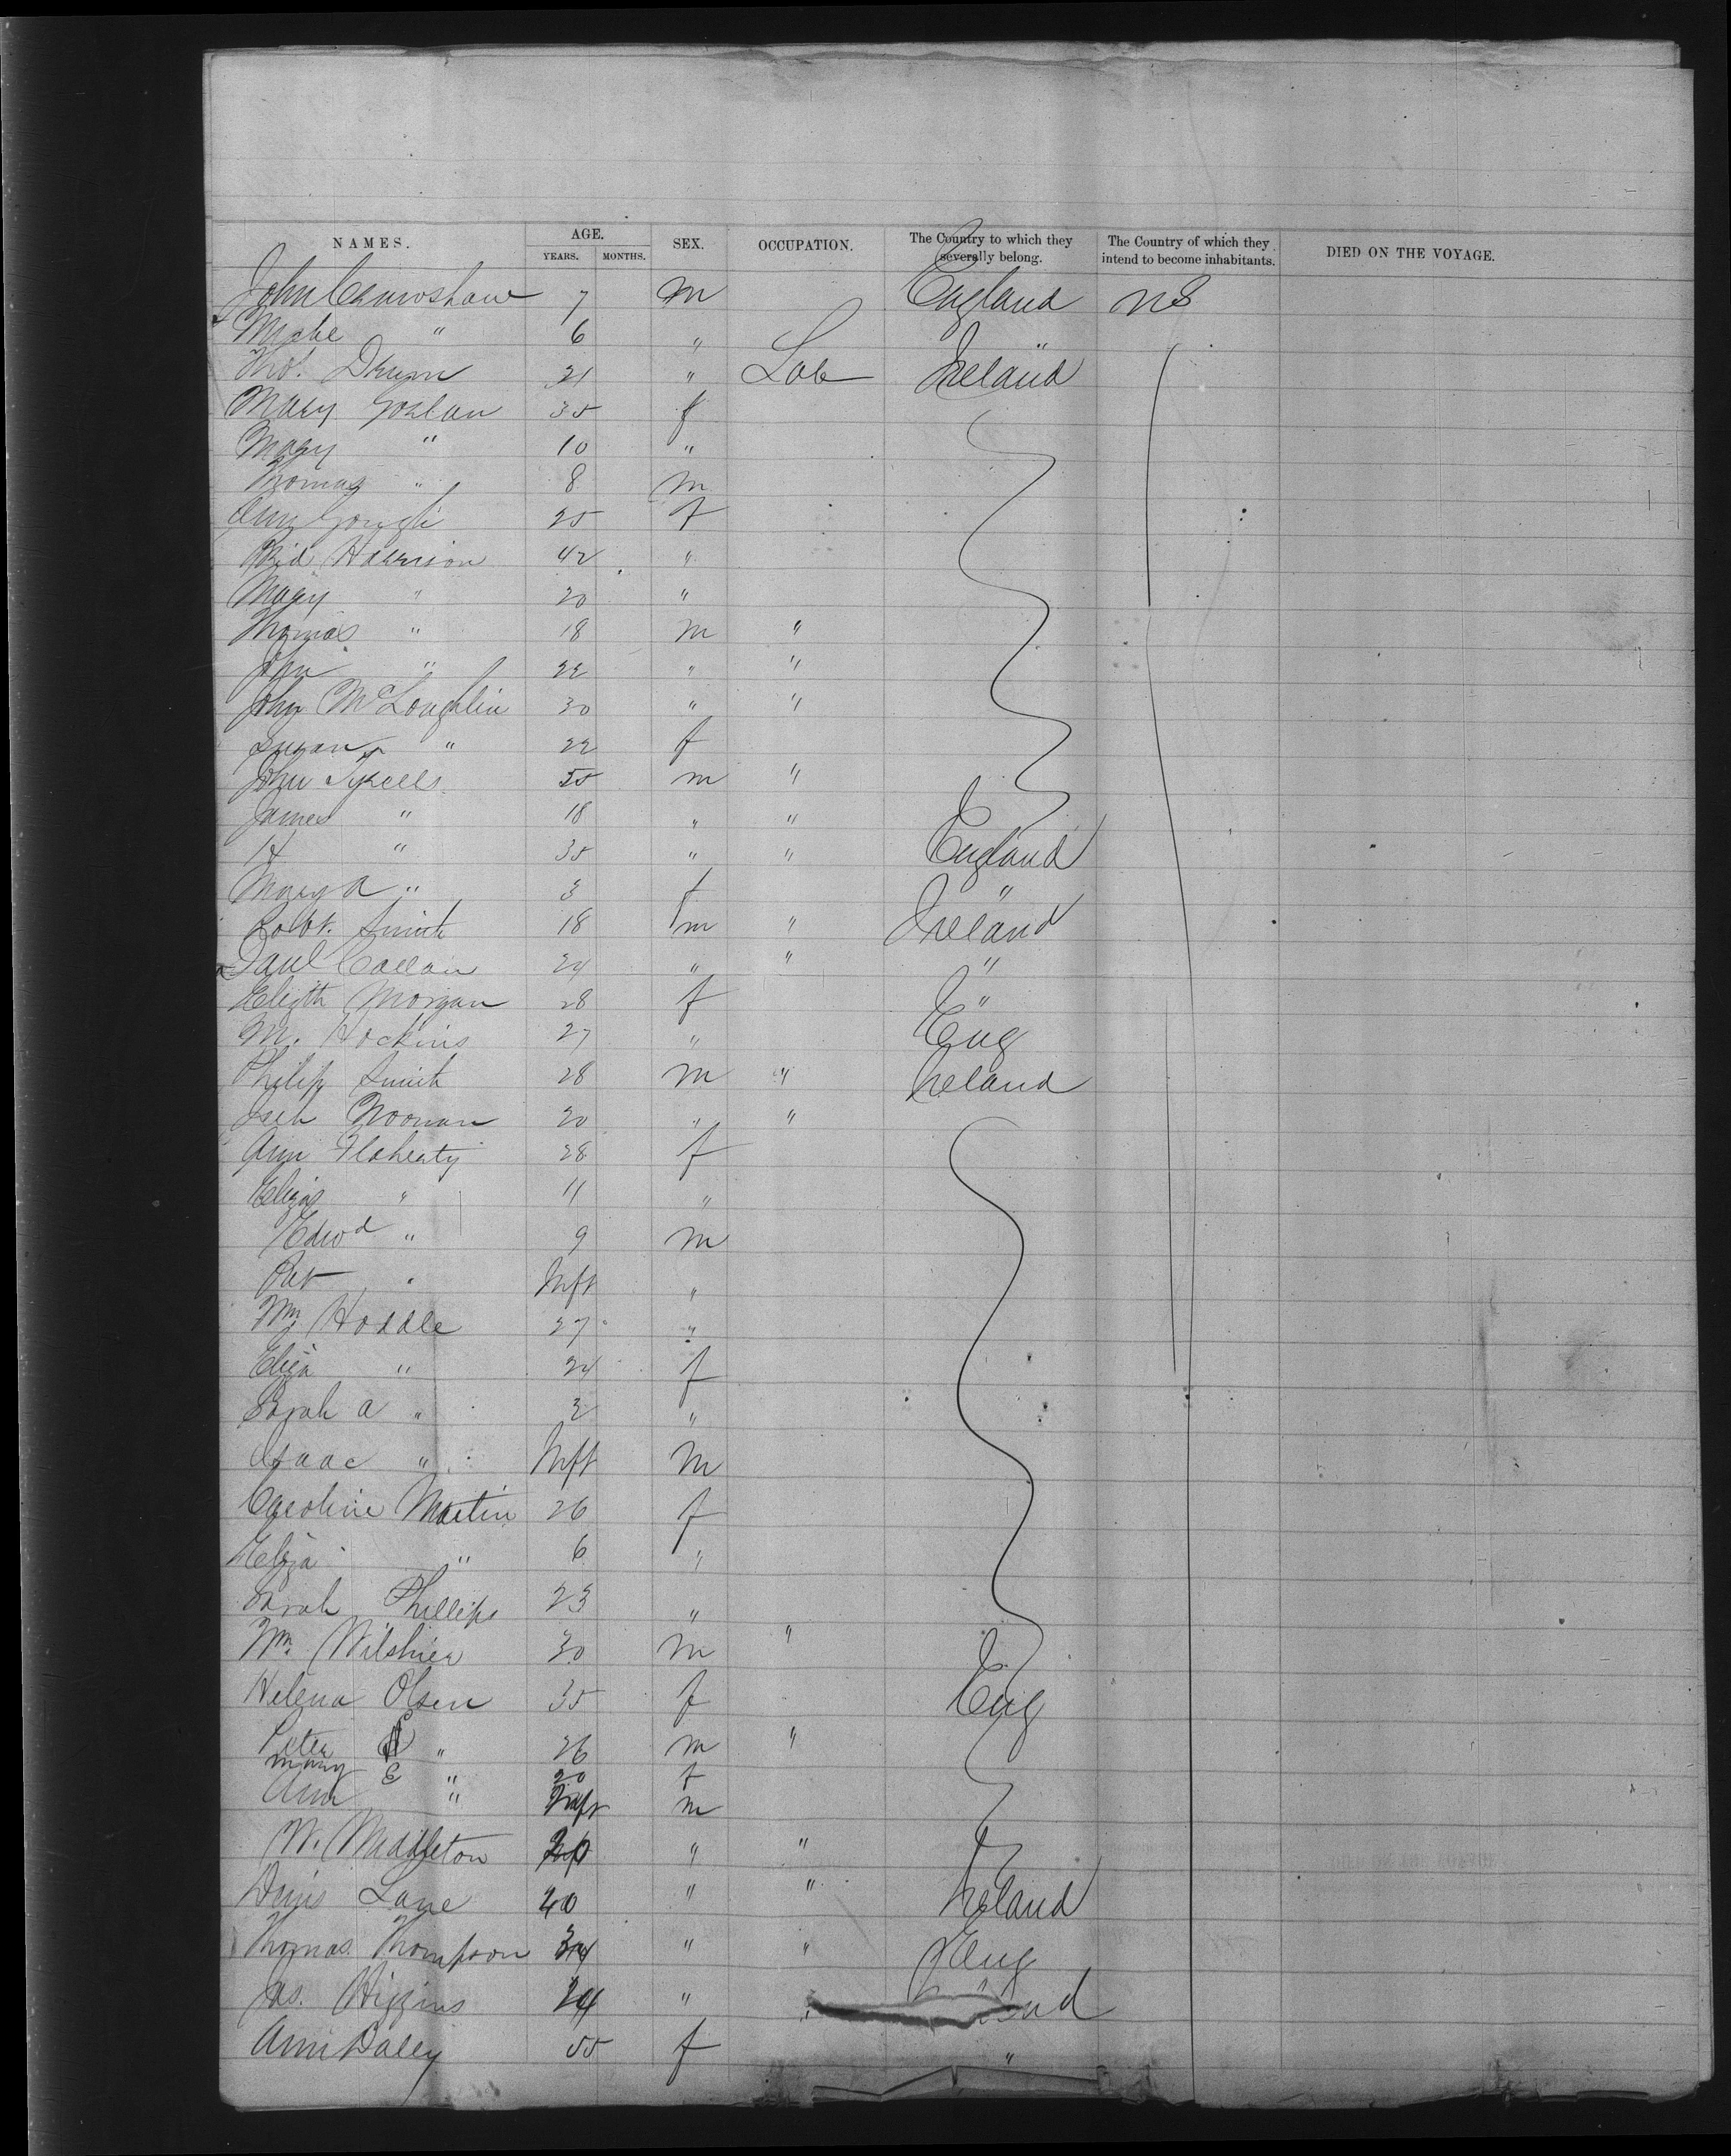 NAMES. AGE. SEX. OCCUPATION. The Country to which they severally belong. The Country of which they intend to become inhabitants. DIED ON THE VOYAGE.
YEARS. MONTHS.
John 7 m England
" 6 "
Thos. 21 " Lab Ireland
Mary 35 f
Mary " 10 "
Thomas " 8 m
Ann Gough 25 f
Bid Harrison 42 "
Mary " 20 "
Thomas " 18 m "
John " 22 " "
John McLoughlin 30 " "
Susan " 22 f
John 50 m "
James " 18 " "
H " 35 " " England
Mary A " 3 f "
Robt. Smith 18 m " Ireland
Callan 24 " " "
Elizth Morgan 28 f "
M. Hockins 27 " Eng
Philip Smith 28 m " Ireland
Noonan 20 " "
Ann Flaherty 28 f
Eliza " 11 "
Edwd " 9 m
Pat " Inft "
Wm 27 "
Eliza " 24 f
Sarah A " 3 "
Isaac " Inft m
Caroline Martin 26 f
Eliza " 6 "
Sarah Phillips 23 "
Wm. Wilshier 30 m "
Helena Olsen 35 f Eng
Peter " 26 m "
Mary E " 20 f
Ann " Inft m
W. Middleton 20 " "
Denis Lane 40 " " Ireland
Thomas Thompson 34 " " Eng
Jas. Higgins 24 " "
Ann Daley 55 f "